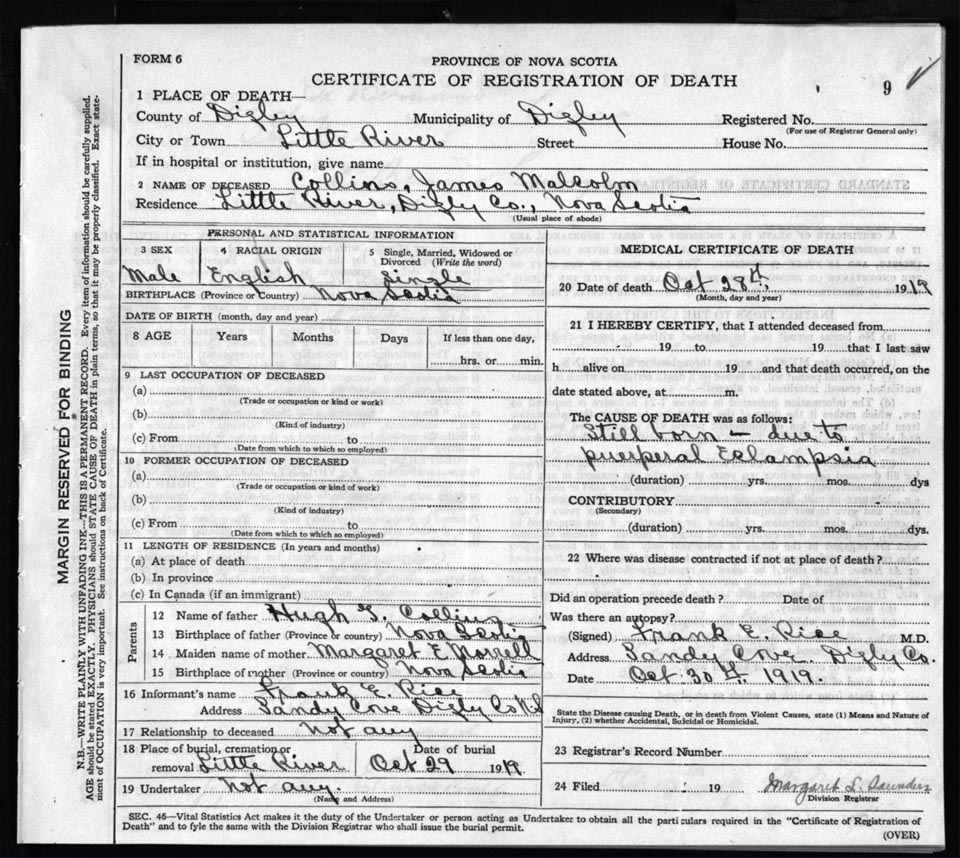 FORM 6
PROVINCE OF NOVA SCOTIA
CERTIFICATE OF REGISTRATION OF DEATH
9
1 PLACE OF DEATH—
County of Digby Municipality of Digby Registered No.
(For use of Registrar General only)
City or Town Little River Street House No.
If in hospital or institution, give name
2 NAME OF DECEASED Collins, James Malcolm
Residence Little River, Digby Co., Nova Scotia
(Usual place of abode)
PERSONAL AND STATISTICAL INFORMATION
3 SEX 4 RACIAL ORIGIN 5 Single, Married, Widowed or Divorced (Write the word)
Male English Single
BIRTHPLACE (Province or Country) Nova Scotia
DATE OF BIRTH (month, day and year)
8 AGE Years Months Days If less than one day,
hrs. or min.
9 LAST OCCUPATION OF DECEASED
(a)
(Trade or occupation or kind or work)
(b)
(Kind of industry)
(c) From to
(Date from which to which so employed)
10 FORMER OCCUPATION OF DECEASED
(a)
(Trade or occupation or kind of work)
(b)
(Kind of industry)
(c) From to
(Date from which to which so employed)
11 LENGTH OF RESIDENCE (In years and months)
(a) At place of death
(b) In province
(c) In Canada (if an immigrant)
Parents
12 Name of father Hugh T. Collins
13 Birthplace of father (Province or country) Nova Scotia
14 Maiden name of mother Margaret E
15 Birthplace of mother (Province or country) Nova Scotia
16 Informant's name Frank E. Rice
Address Sandy Cove Digby Co N S
17 Relationship to deceased not any
18 Place of burial, cremation or Date of burial
removal Little River Oct 29 1919.
19 Undertaker not any.
(Name and Address)
MEDICAL CERTIFICATE OF DEATH
20 Date of death Oct 28th, 1919
(Month, day and year)
21 I HEREBY CERTIFY, that I attended deceased from
19 to 19 that I last saw
h alive on 19 and that death occurred, on the
date stated above, at m.
The CAUSE OF DEATH was as follows:
Still born — due to
puerperal Eclampsia
(duration) yrs. mos. dys
CONTRIBUTORY
(Secondary)
(duration) yrs. mos. dys.
22 Where was disease contracted if not at place of death?
Did an operation precede death? Date of
Was there an autopsy?
(Signed) Frank E. Rice M.D.
Address Sandy Cove Digby Co.
Date Oct 30th, 1919.
State the Disease causing Death, or in death from Violent Causes, state (1) Means and Nature of
Injury, (2) whether Accidental, Suicidal or Homicidal.
23 Registrar's Record Number
24 Filed 19 Margaret L. Saunders
Division Registrar
SEC. 46—Vital Statistics Act makes it the duty of the Undertaker or person acting as Undertaker to obtain all the particulars required in the "Certificate of Registration of
Death" and to fyle the same with the Division Registrar who shall issue the burial permit.
(OVER)
MARGIN RESERVED FOR BINDING
N.B.—WRITE PLAINLY WITH UNFADING INK—THIS IS A PERMANENT RECORD. Every item of information should be carefully supplied.
AGE should be stated EXACTLY. PHYSICIANS should STATE CAUSE OF DEATH in plain terms, so that it may be properly classified. Exact state-
ment of OCCUPATION is very important. See instructions on back of Certificate.